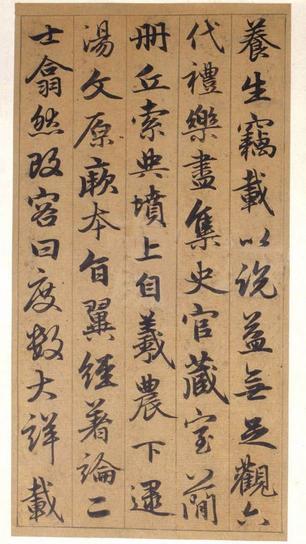 養生竊載以說益無足觀六
代禮樂盡集史官藏室簡
冊丘索典墳上自羲農下逮
湯文原厥本旨翼經著論二
士翕然改容曰度數大詳載